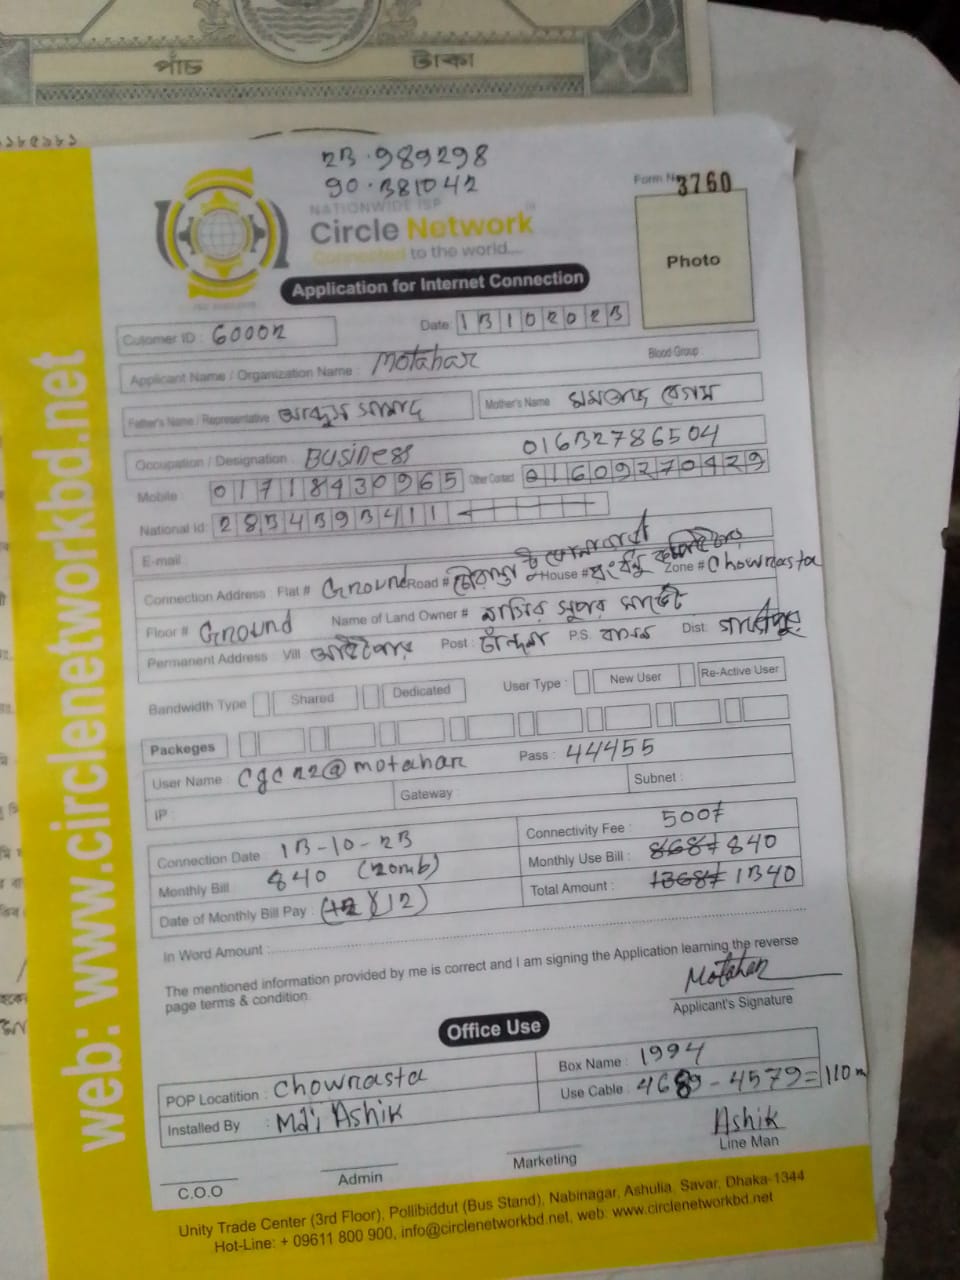 পাঁচ টাকা
23.989298
90.381042
Form No 3760
NATIONWIDE ISP
Circle Network
Connected to the world....
Photo
Application for Internet Connection
Cutomer ID : 60002
Date: 13102023
Applicant Name / Organization Name : Motahar
Blood Group :
Father's Name / Representative : আব্দুস সামাদ
Mother's Name মমতাজ বেগম
Occupation / Designation : Business
01632786504
Mobile : 01718430965 Other Contact 01609270429
National Id: 2834393411
E-mail :
Connection Address : Flat # Ground Road # House # Zone # Chowrasta
Floor # Ground Name of Land Owner # নাসির সুপার মার্কেট
Permanent Address : Vill Post : P.S. Dist:
Bandwidth Type Shared Dedicated User Type : New User Re-Active User
Packeges
User Name : cgc22@motahar Pass : 44455
IP : Gateway : Subnet :
Connection Date : 13-10-23 Connectivity Fee : 500/
Monthly Bill 840 (20mb) Monthly Use Bill : 868/ 840
Date of Monthly Bill Pay : (12) Total Amount : 1368/ 1340
In Word Amount :
The mentioned information provided by me is correct and I am signing the Application learning the reverse
page terms & condition.
Motahar
Applicant's Signature
Office Use
POP Locatition : Chowrasta Box Name : 1994
Installed By : Md; Ashik Use Cable : 4689 - 4579 = 110 m
Ashik
C.O.O Admin Marketing Line Man
Unity Trade Center (3rd Floor), Pollibiddut (Bus Stand), Nabinagar, Ashulia, Savar, Dhaka-1344
Hot-Line: + 09611 800 900, info@circlenetworkbd.net, web: www.circlenetworkbd.net
web: www.circlenetworkbd.net